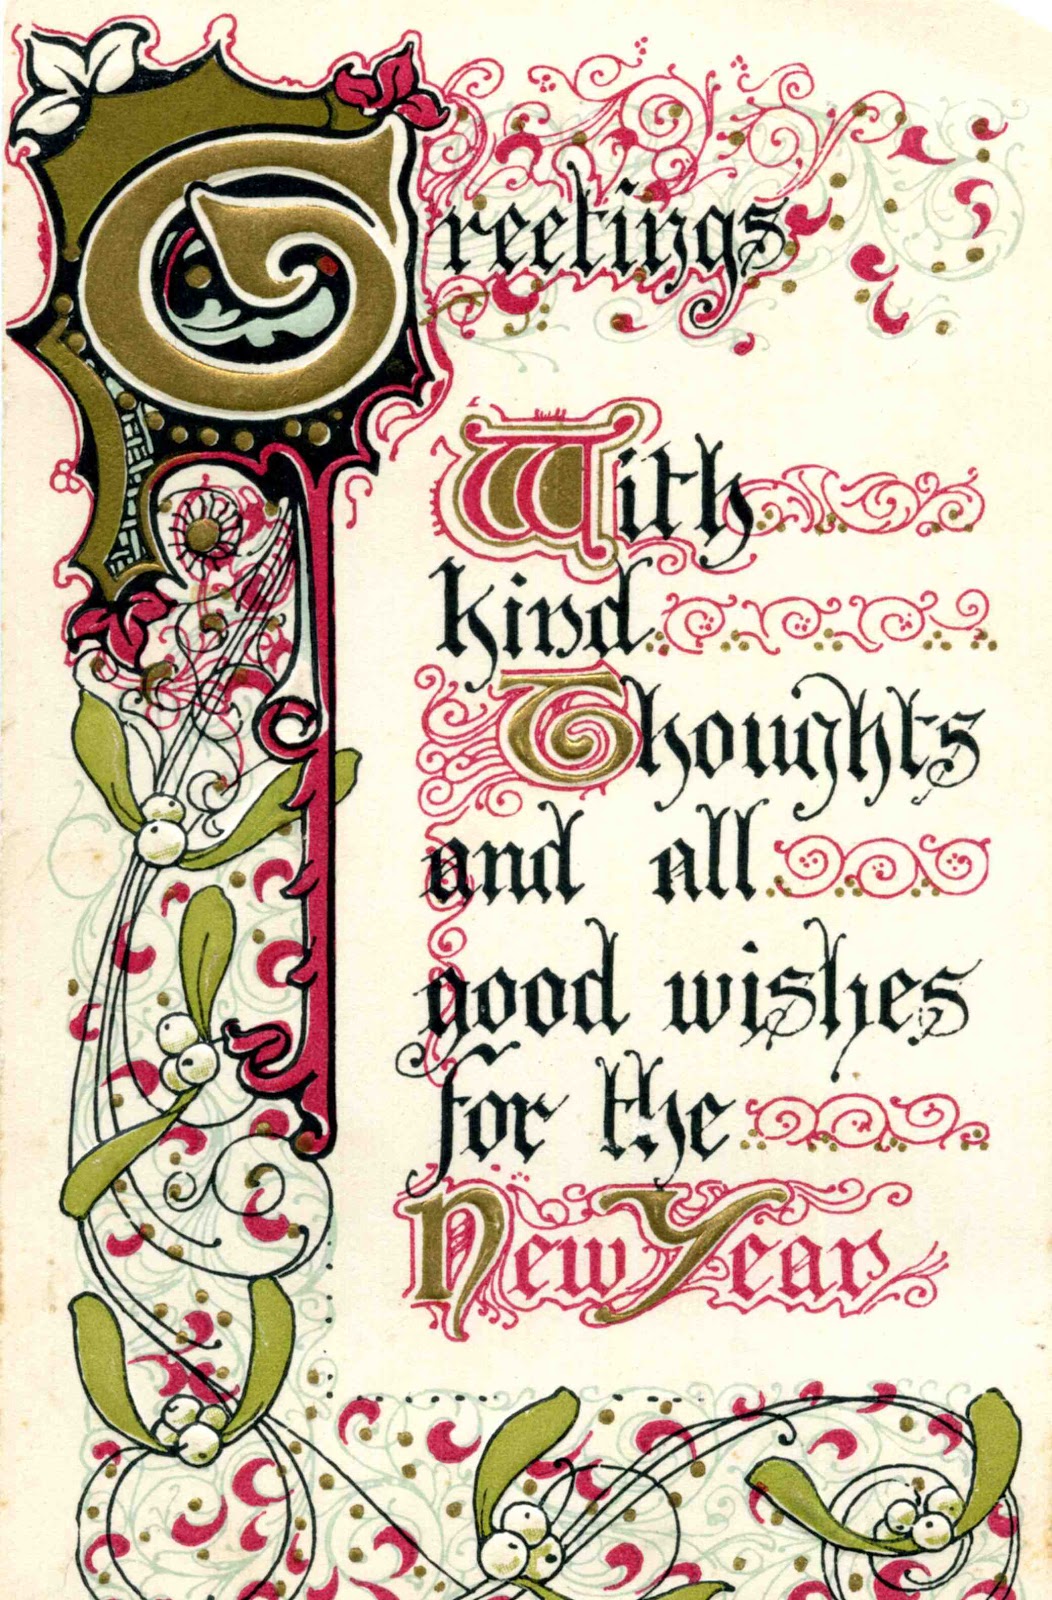 Greetings
With
kind
Thoughts
and all
good wishes
for the
New Year